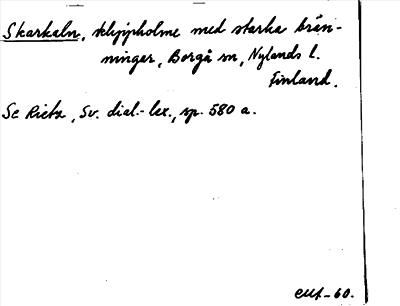 Skarkaln, klippholme med starka brän-
ningar, Borgå sn, Nylands l.
Finland.
Se Rietz, Sv. dial.-lex., sp. 580 a.
-60.